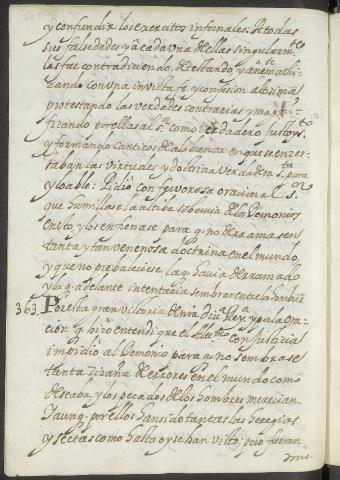 y confundir los exercitos infernales. A todas
sus falsedades y a cada una de ellas singularm.te
las fue contradiciendo, detestando y anathemati-
zando con una invicta fe y confesion altisima
protestando las verdades contrarias y magni-
ficando por ellas al S.r como verdadero justo y S.to
y formando canticos de alabanza en que se enzer-
raban las virtudes y doctrina verdadera S.ta pura
y loable: Pidio con fervorosa oracion al S.r
que humillase la altiba sobervia de los Demonios
en esto, y los enfrenase para q. no derramasen
tanta y tan venenosa doctrina en el mundo,
y que no prebaleciese la q. havia derramado
y la q. adelante intentaria sembrar entre los hombres
363. Por esta gran victoria de nra div.a Rey.a y por la Ora-
cion q. hizo entendi que el Alt.mo con justicia
impidio al Demonio para q. no sembrase
tanta zizaña de errores en el mundo como
deseaba, y los pecados de los hombres merecian.
Y aunq. por ellos han sido tantas las heregias
y sectas como hasta oy se han visto; pero fueran
mu